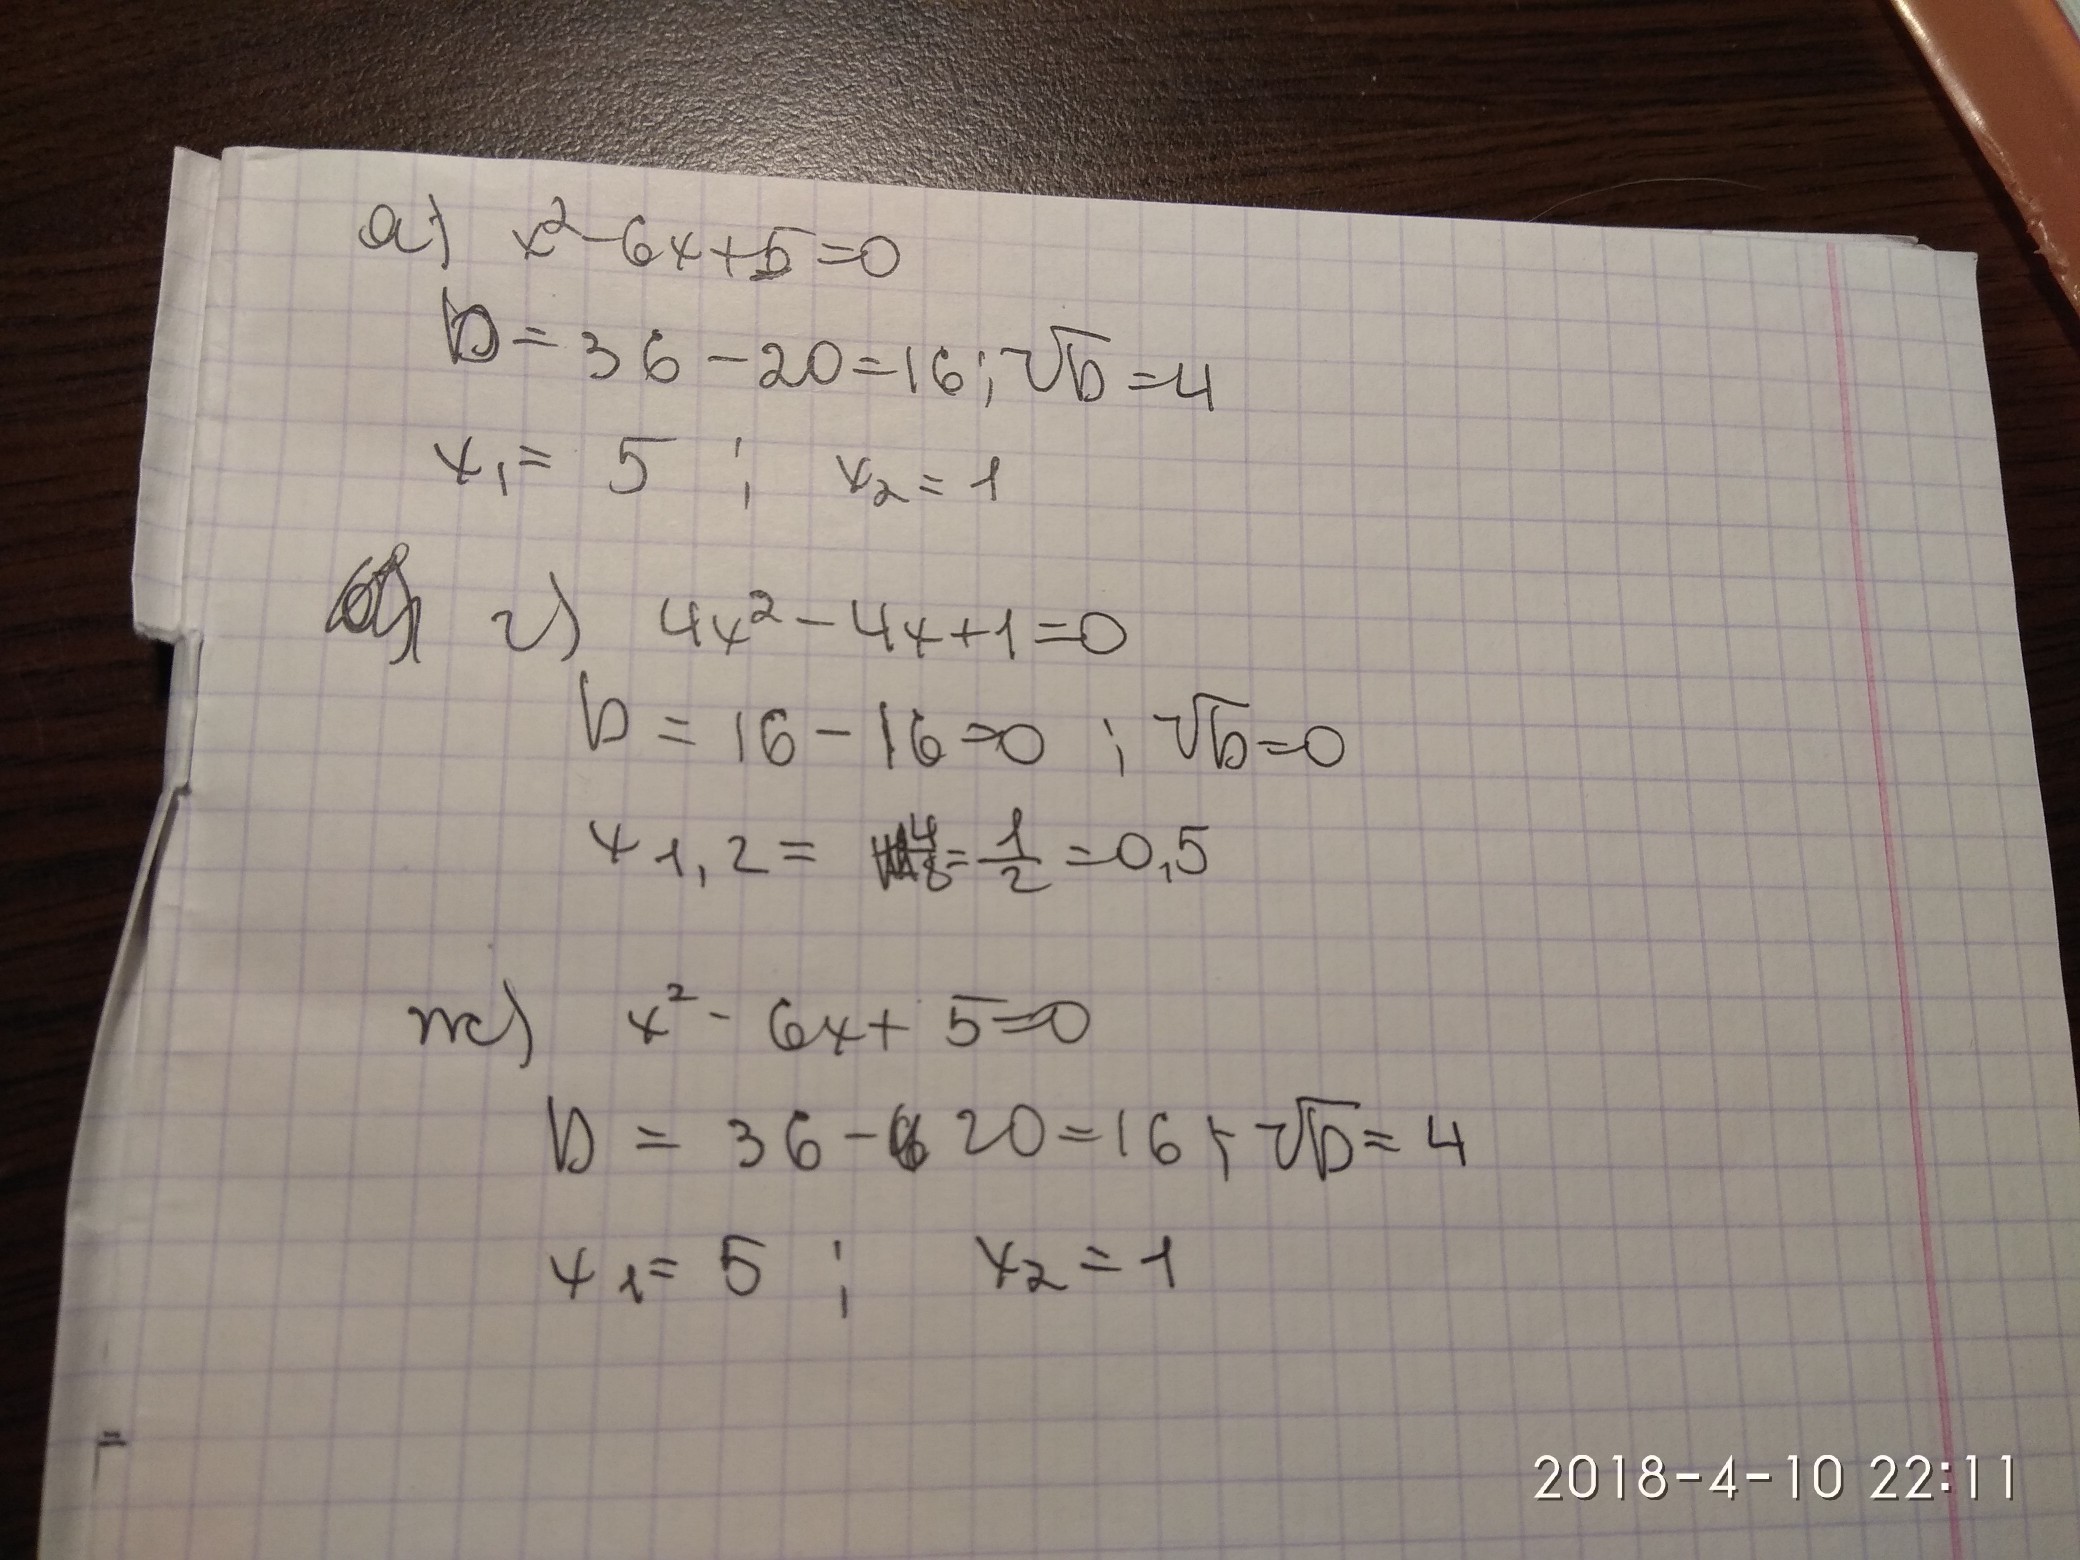 а) x²-6x+5=0
D=36-20=16; √D=4
x₁= 5 ; x₂=1
г) 4x²-4x+1=0
D=16-16=0 ; √D=0
x₁,₂= 4/8=1/2=0,5
ж) x²-6x+5=0
D=36-20=16; √D=4
x₁=5 ; x₂=1
2018-4-10 22:11